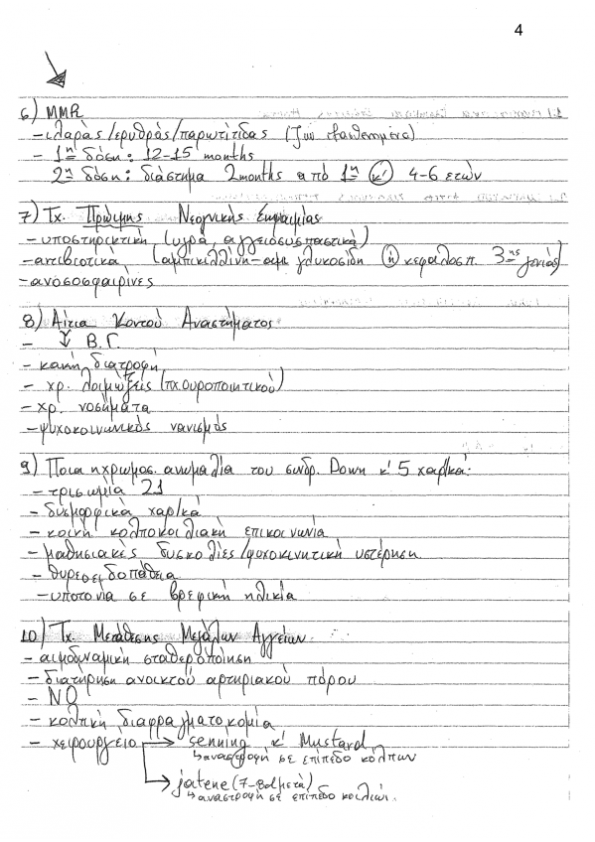 4
6) MMR
- ιλαράς/ερυθράς/παρωτίτιδας (
- 1η δόση: 12-15 months
2η δόση: διάστημα 2months από 1η κ' 4-6 ετών
7) Τχ. Πρώιμης Νεογνικής Σηψαιμίας
- υποστηρικτική (υγρά, αγγειοσυσπαστικά)
- αντιβιοτικά (αμπικιλλίνη-αμ. γλυκοσίδη ή κεφαλοσπ. 3ης γενιάς)
- ανοσοσφαιρίνες
8) Αίτια Κοντού Αναστήματος
- ↓ Β.Γ.
- κακή διατροφή
- χρ. λοιμώξεις (πχ ουροποιητικού)
- χρ. νοσήματα
- ψυχοκοινωνικός νανισμός
9) Ποια η χρωμοσ. ανωμαλία του συνδρ. Down κ' 5 χαρ/κά:
- τρισωμία 21
- δυσμορφικά χαρ/κά
- κοινή κολποκοιλιακή επικοινωνία
- μαθησιακές δυσκολίες/ψυχοκινητική υστέρηση
- θυρεοειδοπάθεια
- υποτονία σε βρεφική ηλικία
10) Τχ. Μετάθεσης Μεγάλων Αγγείων.
- αιμδυναμική σταθεροποίηση
- διατήρηση ανοικτού αρτηριακού πόρου
- NO
- κολπική διαφραγματοκομία
- χειρουργείο → senning κ' Mustard
↳ αναστροφή σε επίπεδο κόλπων
→ jatene (7-8d μετά)
↳ αναστροφή σε επίπεδο κοιλιών.